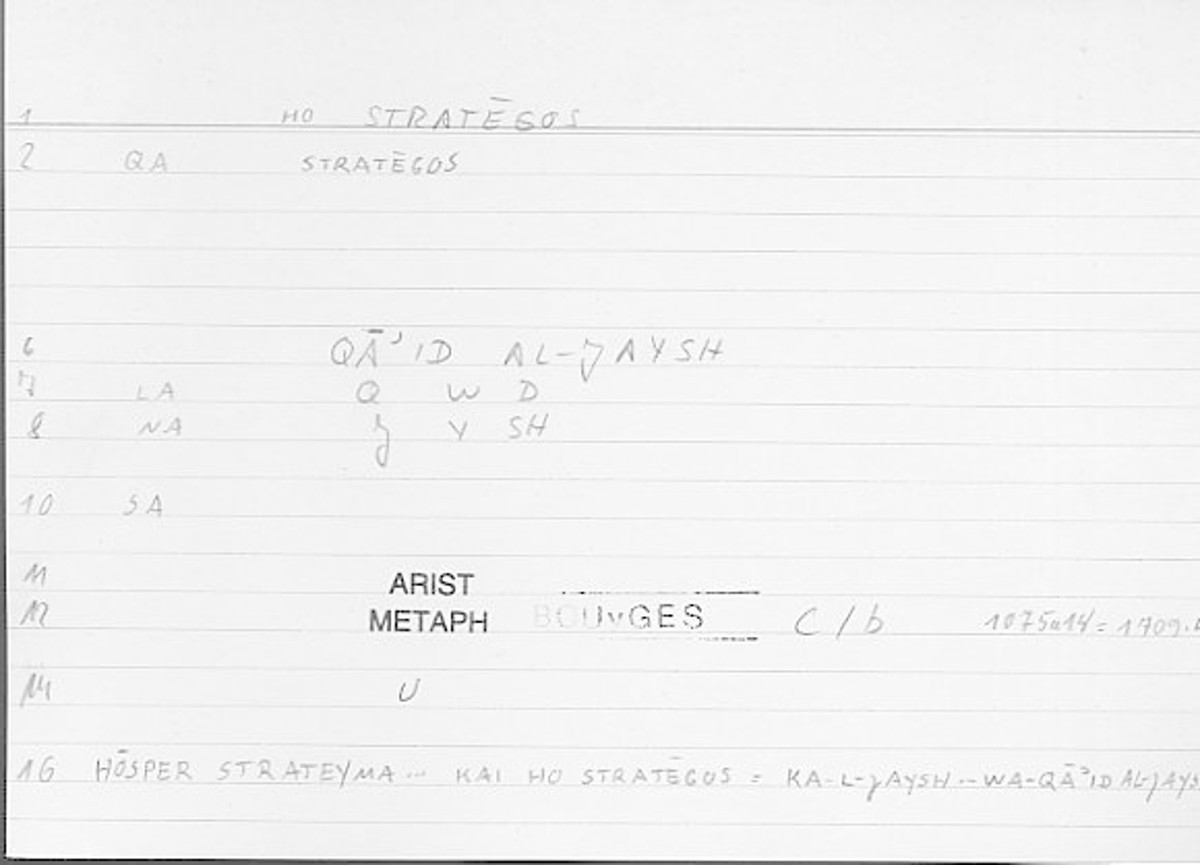 1 HO STRATĒGOS
2 QA STRATĒGOS
6 QĀʾID AL-JAYSH
7 LA Q W D
8 NA J Y SH
10 SA
11 ARIST
12 METAPH BOUYGES C / b 1075a14 = 1709.
14 U
16 HŌSPER STRATEYMA ... KAI HO STRATĒGOS = KA-L-JAYSH ... WA-QĀʾID AL-JAYS